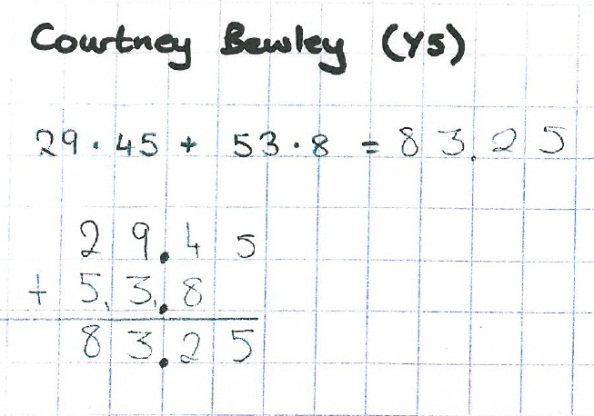 Courtney Bewley (Y5)
29.45 + 53.8 = 83.25
29.45
+ 53.8
83.25